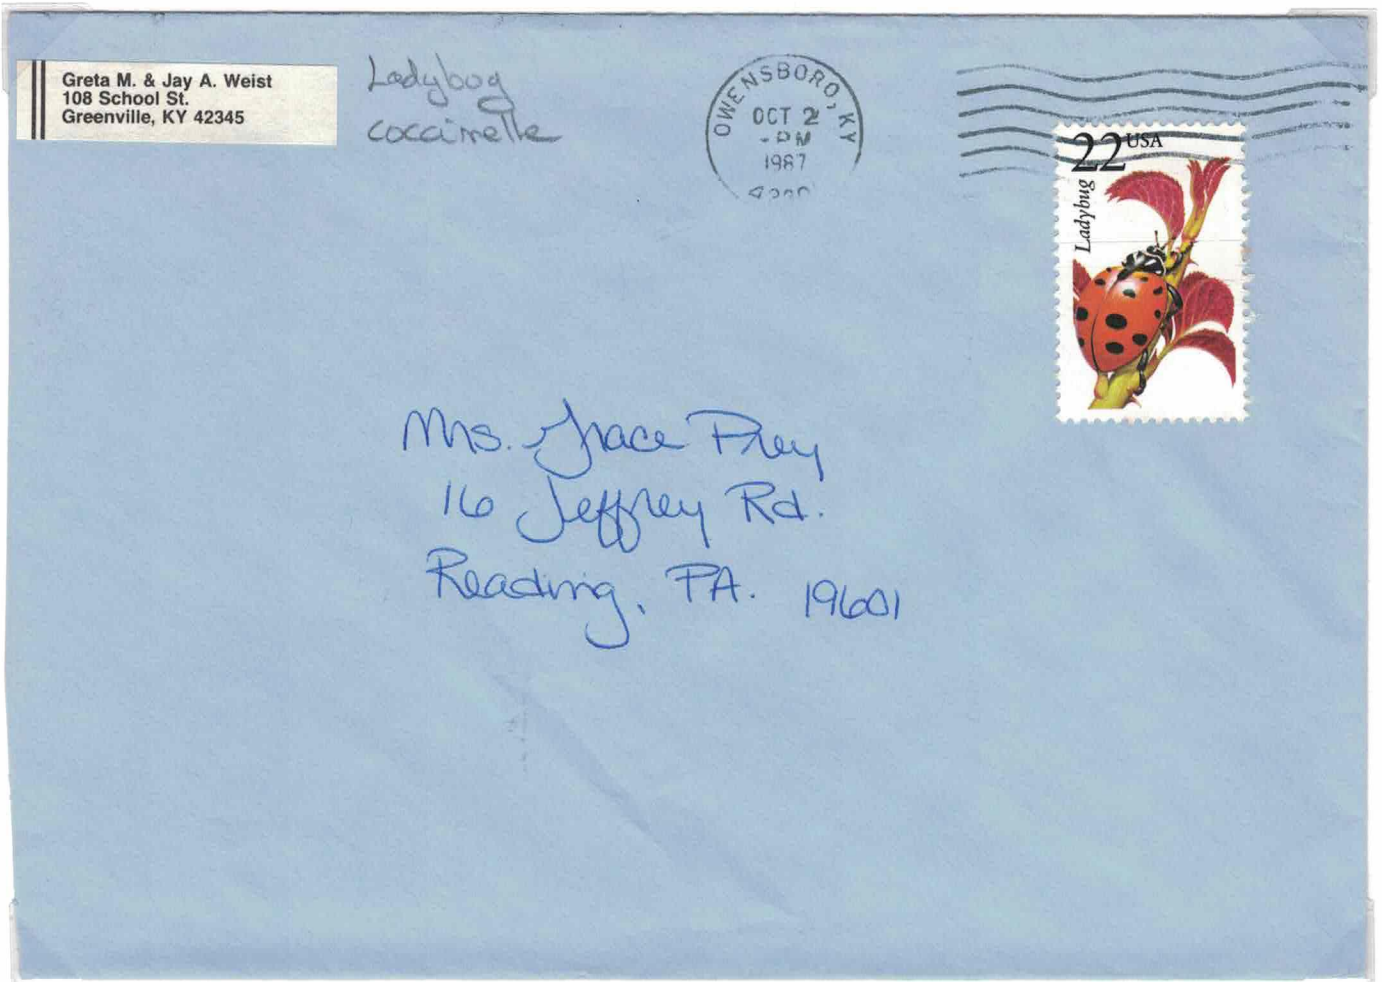 Greta M. & Jay A. Weist
108 School St.
Greenville, KY 42345
Ladybug
coccinelle
OWENSBORO, KY
OCT 2
PM
1987
22 USA
Ladybug
Mrs. Grace Prey
16 Jeffrey Rd.
Reading, PA. 19601